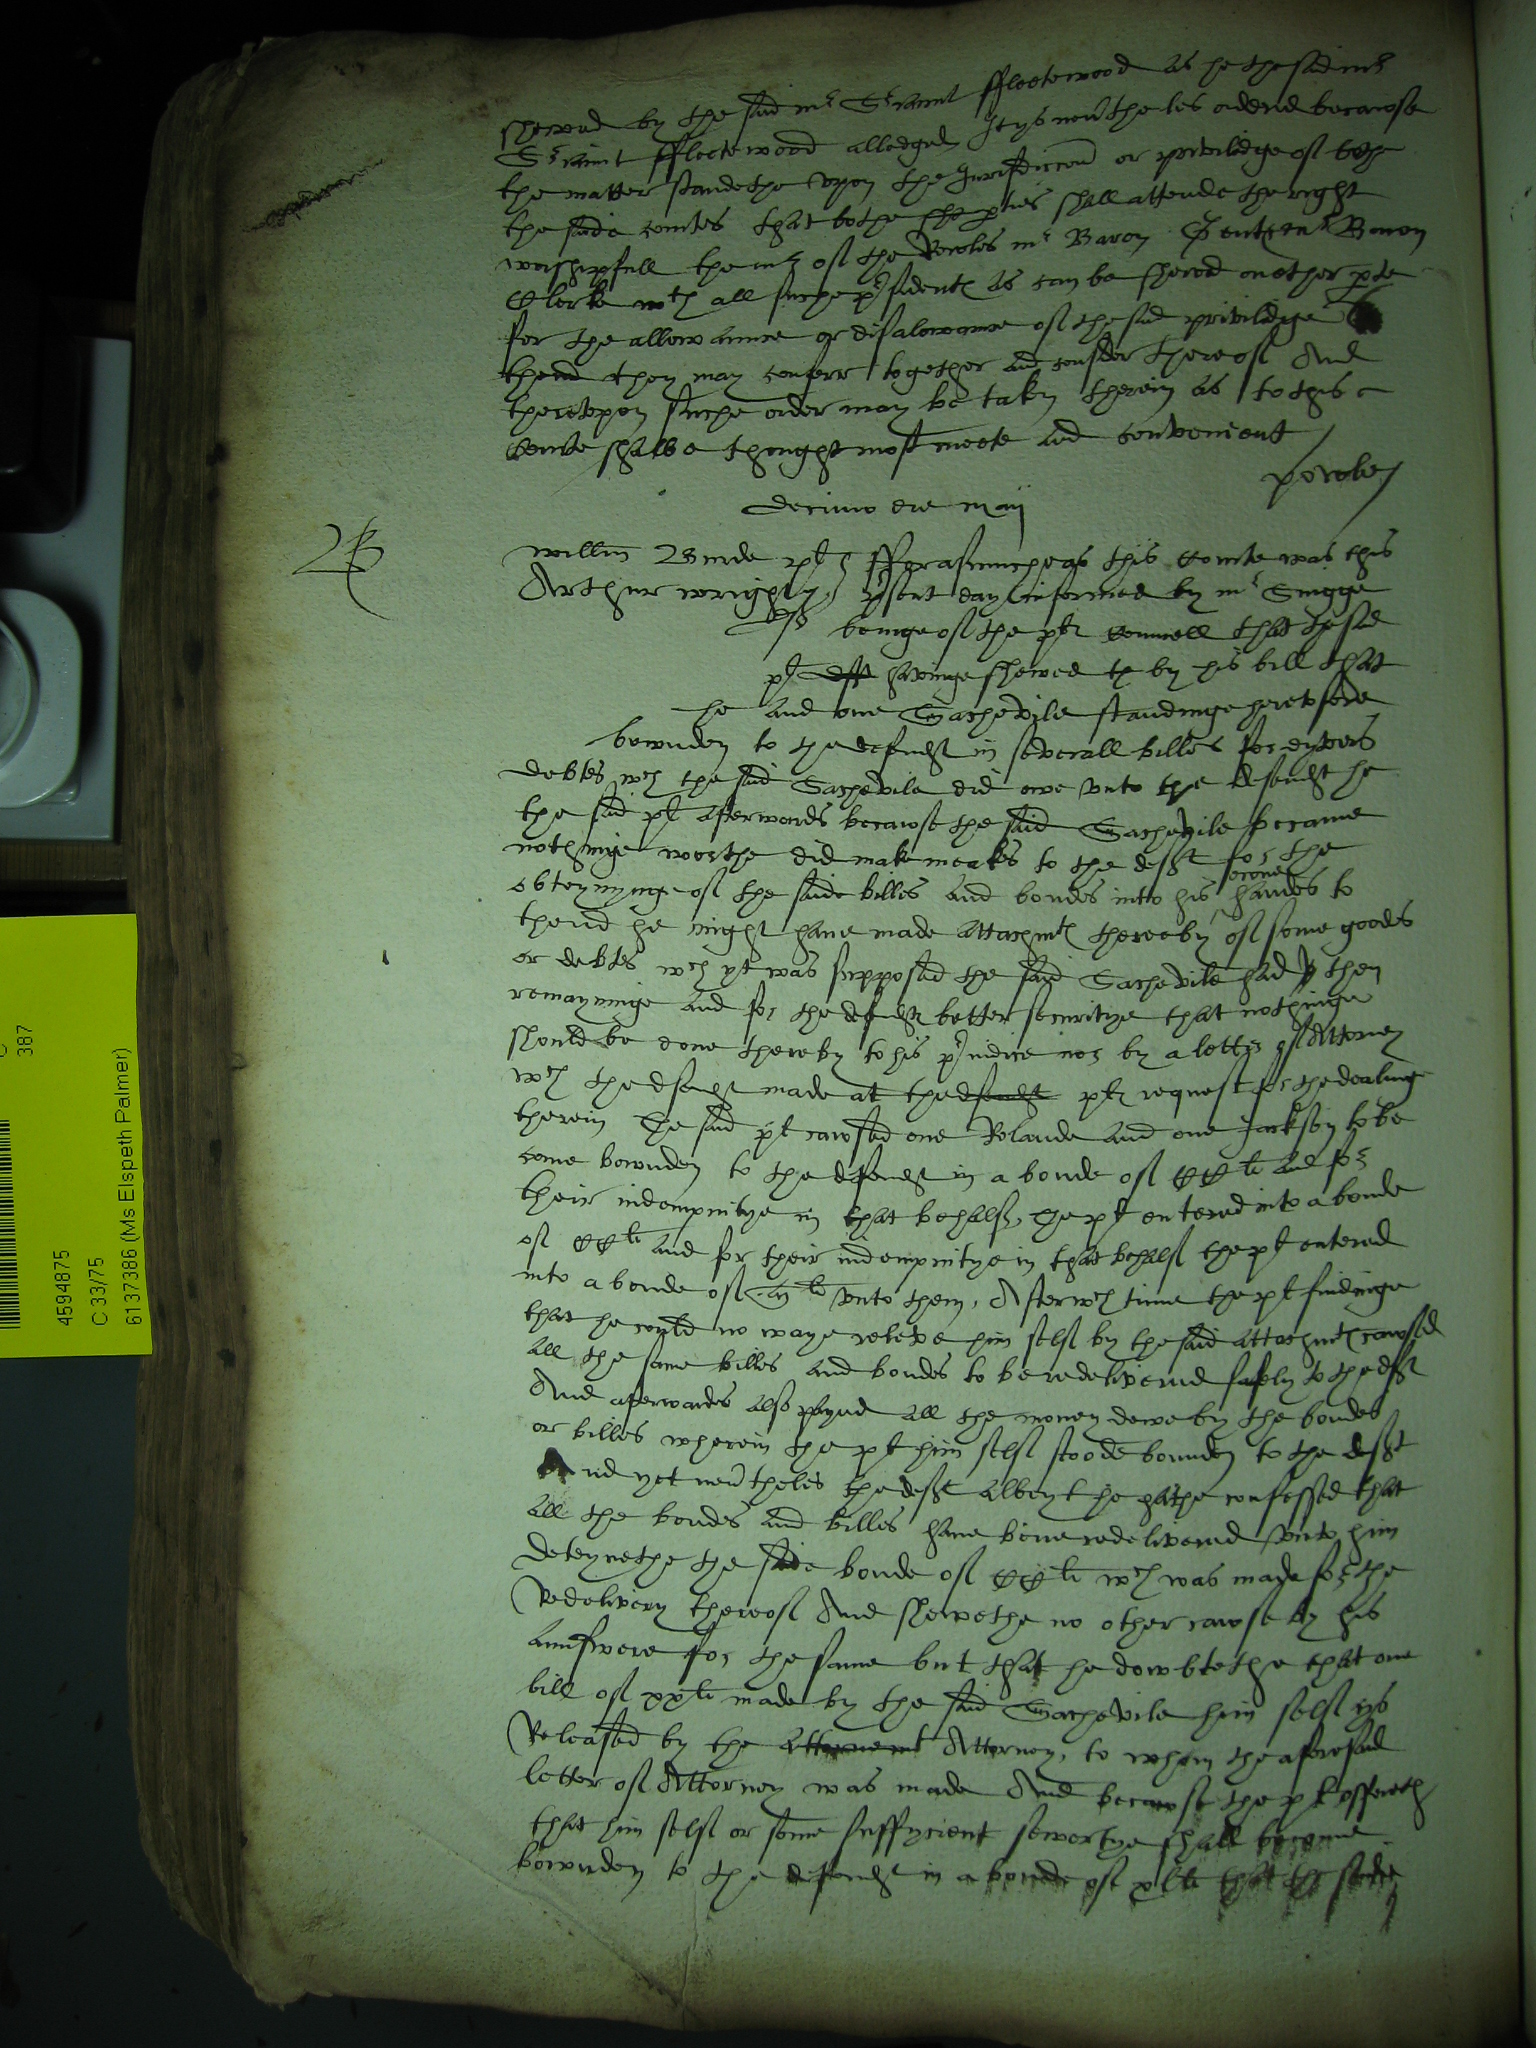 shewed by the said mr Sriaunt Fletewood as he the said mr
Sriaunt Fletewood alledged Itys neutheles ordered because
the matter standethe vpon the Jurisdiccon or priviledge of bothe
the saide courtes that bothe the pties shall attende the right
worshipfull the mr of the Rowles mr Baron mr Baron
Clerke wth all suche psidents as can be shewed on ether pte
for the allowaunce or disalowance of the said priviledge
thend they may conferr together and consider thereof And
therevpon suche order may be taken therein as to this
Courte shalbe thought most meete and convenient
powle
decimo die maij
Willm Burde plt Forasmucheas this Courte was this
Arthur Wright psent day informed by mr Snigge
deft beinge of the plts Councell that the said
plt deft havinge shewed by his bill that
he and one Sachevile standinge heretofore
bownden to the defendt in severall billes for dyvers
debtes wch the said Sachevile did owe vnto the defendt he
the said plt afterwards because the said Sachevile became
nothinge worthe did make meanes to the deft for the
obteynynge of the saide billes and bondes into his handes to
thend he might haue made attachmt thereby of some goodes
or debtes wch yt was supposed the said Sachevile had then
remayninge and for the defendts better securitye that nothinge
should be done thereby to his piudice nor by a letter of Attorney
wch the defendt made at the defendt plts request for the dealinge
therein The said plt cawsed one Rolande and one Jackson to be
come bownden to the defendt in a bonde of CCli and for
their indempnitye in that behalfe, The plt entered into a bonde
of CCli and for their indempnitye in that behalf the plt entered
into a bonde of li vnto them, After wch time the plt findinge
that he could no waye releve him self by the said attachmt cawsed
all the same billes and bondes to be redelivered safely to the deft
And afterwardes also payed all the money dewe by the bondes
or billes wherein the plt him self stoode bounden to the deft
And yet neutheles the deft albeyt he hathe confessed that
all the bondes and billes haue bene redelivered vnto him
deteynethe the saide bonde of CCli wch was made for the
Redelivery thereof And shewethe no other cawse by his
aunswere for the same but that he dowbtethe that one
bill of xxli made by the said Sachevile him self ys
Released by the Attorney, to whom the aforesaid
letter of Attorney was made And becawse the plt offereth
that him self or some suffycient sewertye shall become
bownden to the defendt in a bonde of xlli that the saide
4594875
C 33/75
6137386 (Ms Elspeth Palmer)
387